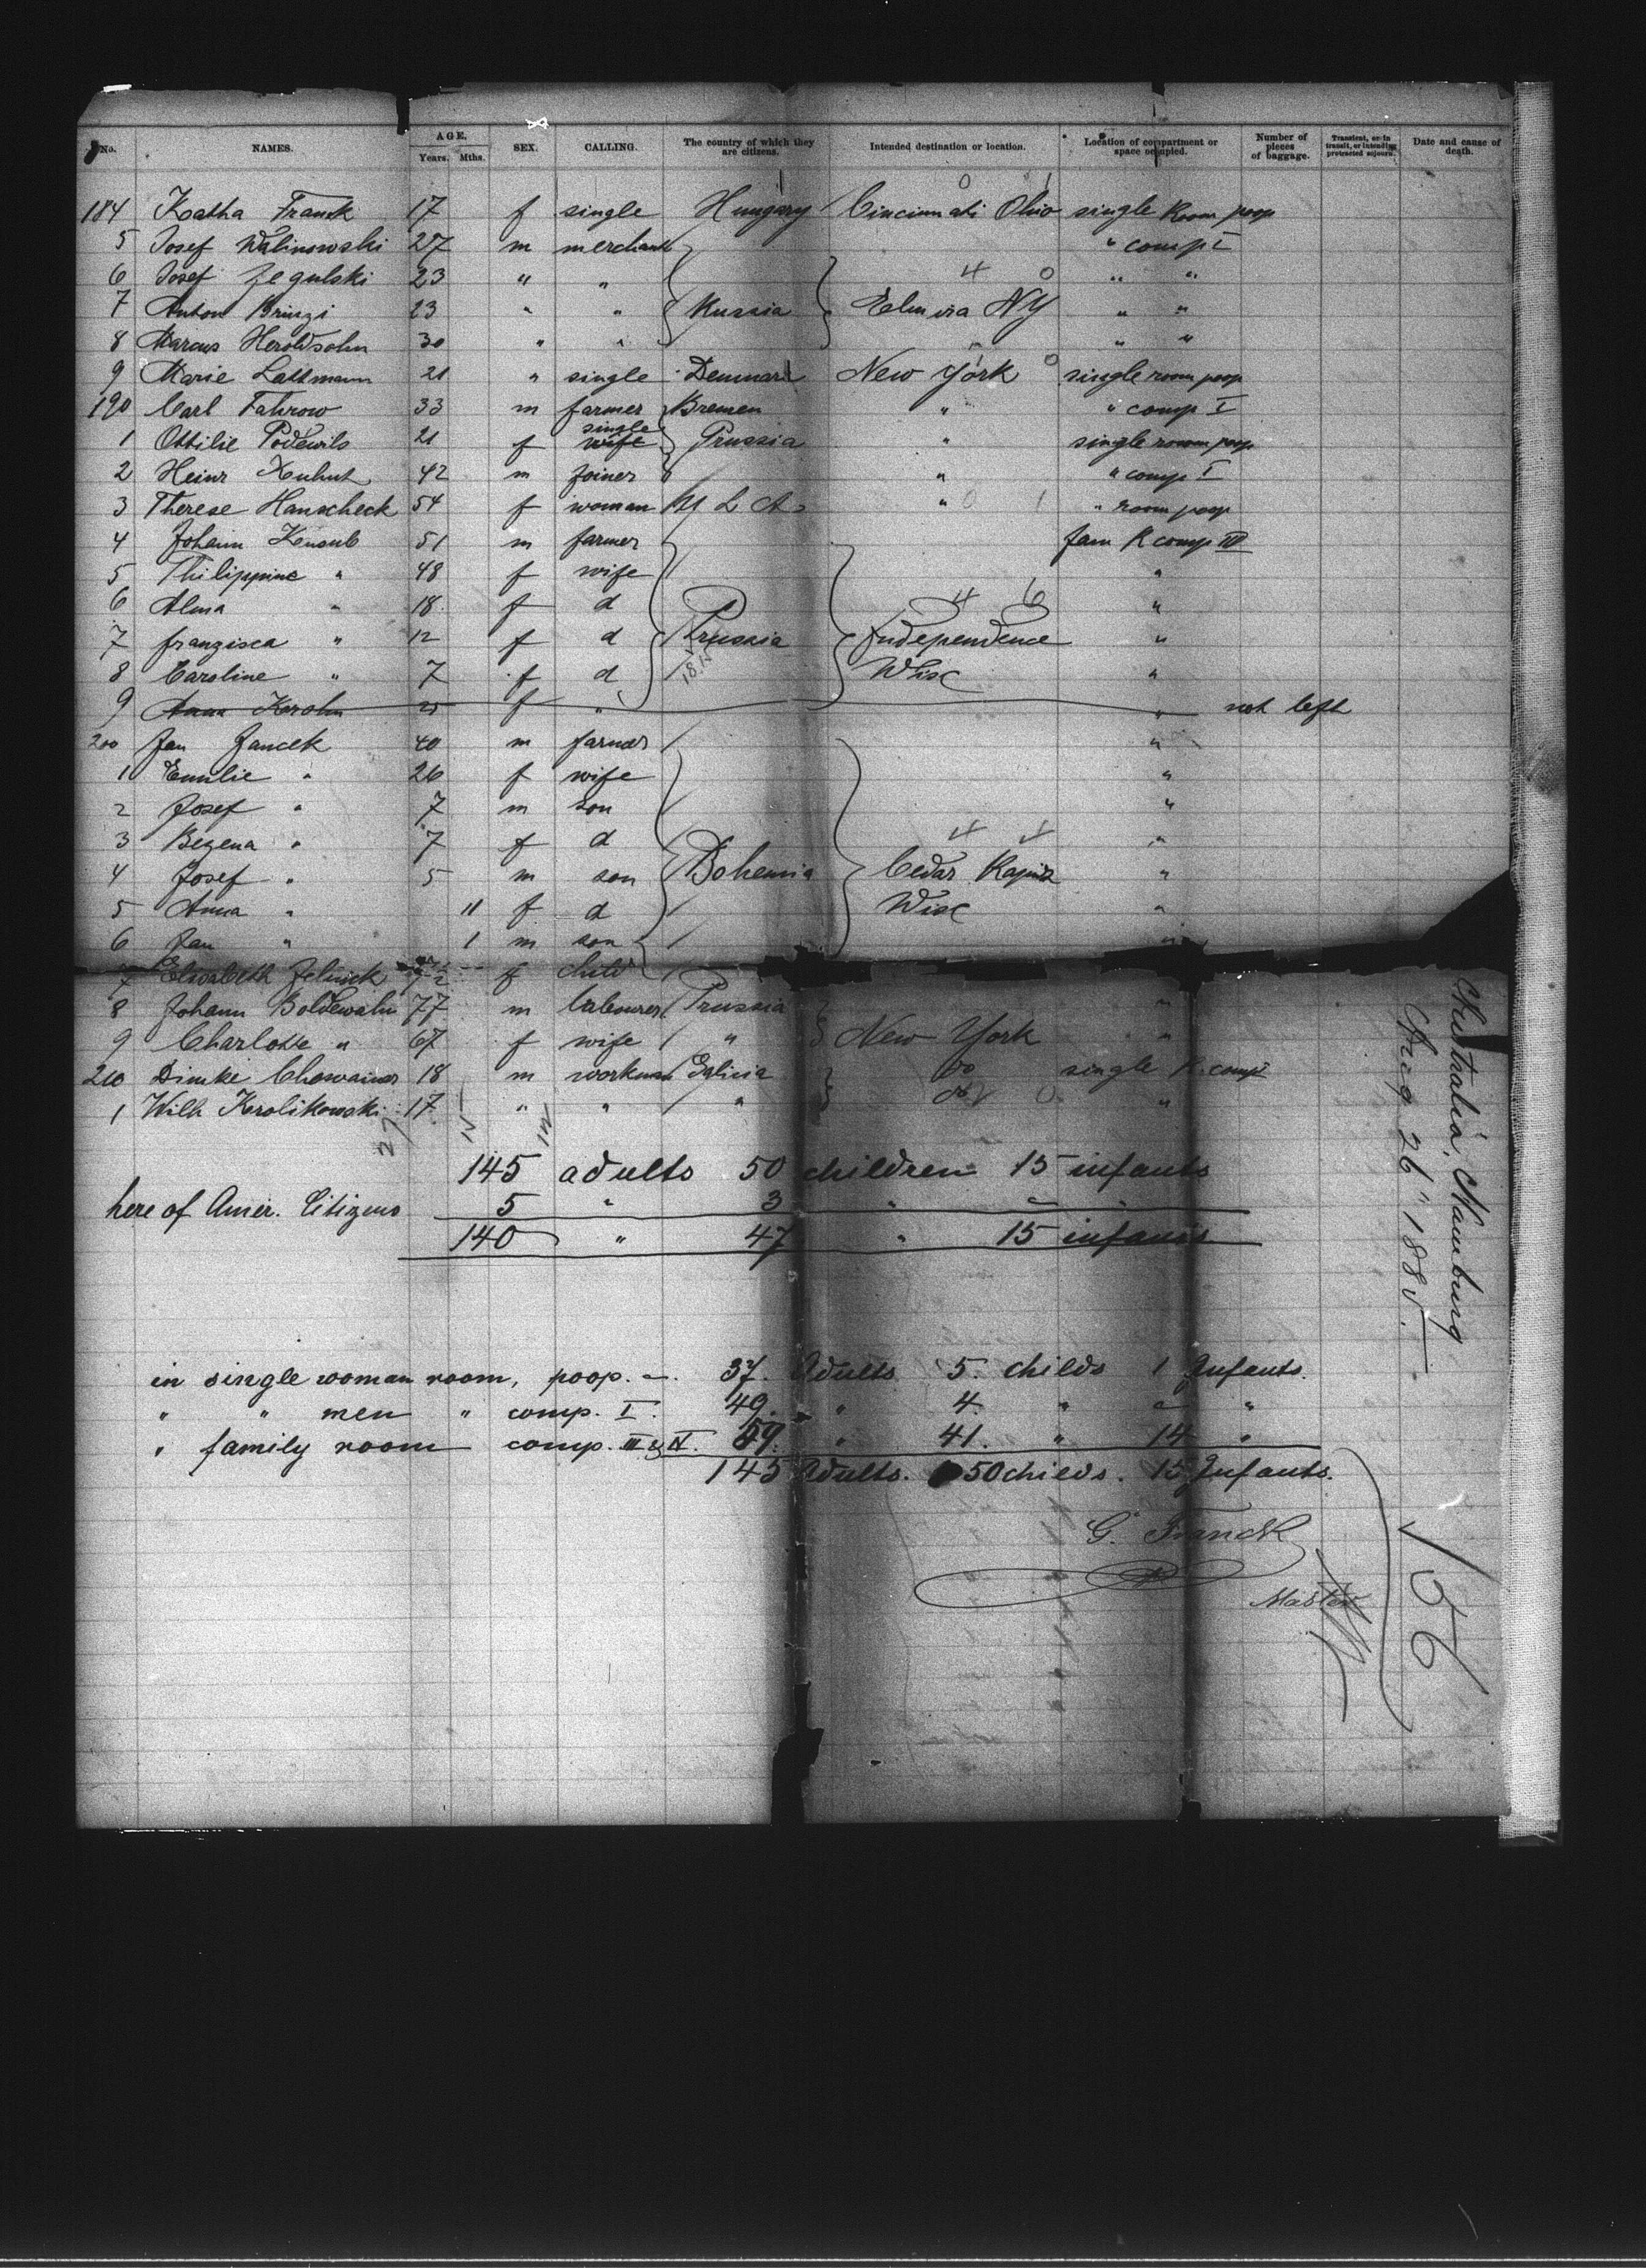 No. NAMES. AGE. Years. Mths. SEX. CALLING. The country of which they are citizens. Intended destination or location. Location of compartment or space occupied. Number of pieces of baggage. Transient, or in transit, or intending protracted sojourn. Date and cause of death.
184 Katha Franck 17 f single Hungary Cincinnati Ohio single Room poop
5 Josef Walinowski 27 m merchant " comp I
6 Josef Zegulski 23 " " " "
7 Anton Brinzi 23 " " Russia Elmira NY " "
8 Marcus Heroldsohn 30 " " " "
9 Marie Lattmann 21 " single Denmark New York single room poop
190 Carl Fahrow 33 m farmer Bremen " " comp I
1 Ottilie Podewils 21 f single wife Prussia " single room poop
2 Heinr 42 m joiner " " comp I
3 Therese Hanscheck 54 f woman " " room poop
4 Johann 51 m farmer fam R comp III
5 Philippine " 48 f wife "
6 Alma " 18 f d 4 6 "
7 franzisca " 12 f d Prussia Independence "
8 Caroline " 7 f d Wisc "
9 Anna Kerohn 25 f " " not left
200 Jan Jancek 40 m farmer "
1 Emilie " 26 f wife "
2 Josef " 7 m son "
3 Bezena " 7 f d 4 4 "
4 Josef " 5 m son Bohemia Cedar Rapids "
5 Anna " 11 f d Wisc "
6 Jan " 1 m son "
7 Elisabeth Jelinek f child
8 Johann Boldewahn 77 m labourer Prussia "
9 Charlotte " 67 f wife " New York "
210 Dimke Chowainer 18 m workman Galicia do single R. comp I
1 Wilh Krolikowski 17 " " " do "
145 adults 50 children 15 infants
here of Amer. Citizens 5 " 3 " - "
140 " 47 " 15 infants
in single woman room, poop. - 37. Adults 5. childs 1 Infants.
" " men " comp. I. 49. " 4. " - "
" family room comp. III & IV. 59. " 41. " 14 "
145 Adults. 50 childs. 15 Infants.
G. Franck
Master
"Australia", Hamburg
Aug 26" 1885.
156